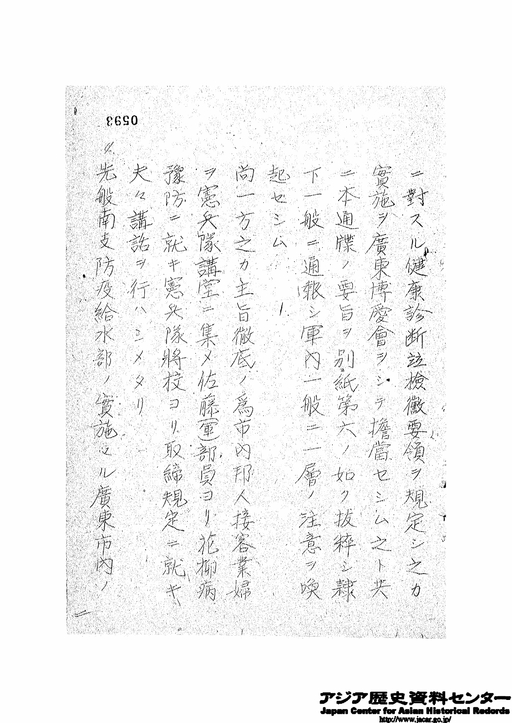 0593
ニ對スル健康診断竝檢黴要領ヲ規定シ之カ
實施ヲ廣東博愛會ヲシテ擔當セシム之ト共
ニ本通牒ノ要旨ヲ別紙第六ノ如ク抜粹シ隷
下一般ニ通報シ軍內一般ニ一層ノ注意ヲ喚
起セシム
尚一方之カ主旨徹底ノ為市內邦人接客業婦
ヲ憲兵隊講堂ニ集メ佐藤軍部員ヨリ花柳病
豫防ニ就キ憲兵隊將校ヨリ取締規定ニ就キ
夫々講話ヲ行ハシメタリ
先般南支防疫給水部ノ實施セル廣東市內ノ
アジア歴史資料センター
Japan Center for Asian Historical Records
http://www.jacar.go.jp/